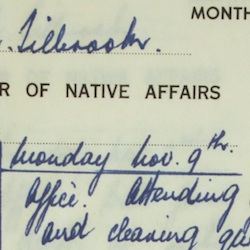 MONTH
. Tilbrook.
R OF NATIVE AFFAIRS
Monday Nov. 9th.
Office. Attending
and cleaning